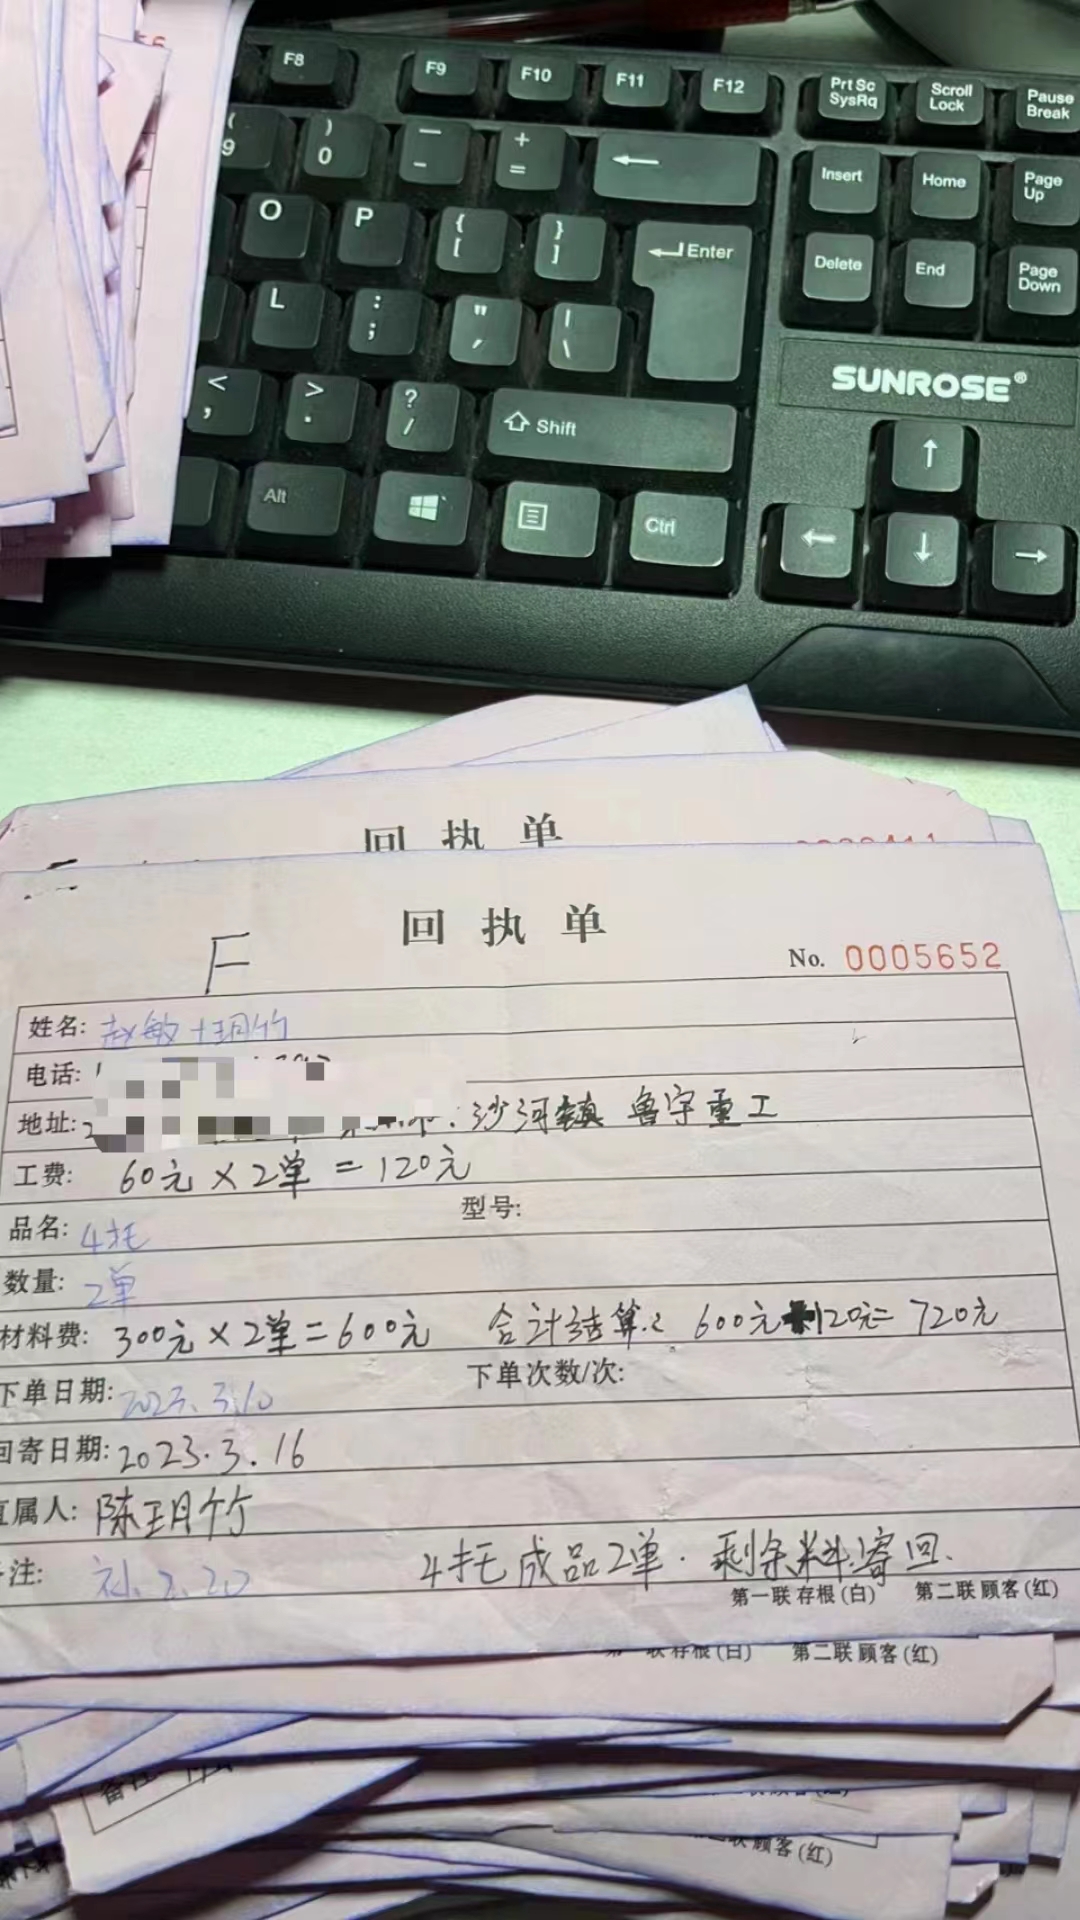 F8 F9 F10 F11 F12 Prt Sc SysRq Scroll Lock Pause Break
( 9 ) 0 — - + = ← Insert Home Page Up
O P { [ } ] Enter Delete End Page Down
L : ; " ' | \
SUNROSE®
< , > . ? / Shift ↑
Alt Ctrl ← ↓ →
回执单
回执单
F
No. 0005652
姓名: 赵敏+玥竹
电话:
地址: 沙河镇 鲁宇重工
工费: 60元×2单=120元
品名: 4托 型号:
数量: 2单
材料费: 300元×2单=600元 合计结算: 600元+120元=720元
下单日期: 2023.3.10 下单次数/次:
回寄日期: 2023.3.16
直属人: 陈玥竹
注: 2.20 4托成品2单. 剩余料寄回.
第一联 存根(白) 第二联 顾客(红)
第二联 顾客(红)
顾客(红)